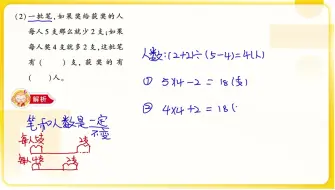 (2)一批笔,如果奖给获奖的人
每人5支那么就少2支;如果
每人奖4支就多2支,这批笔
有( )支,获奖的有
( )人。
解析
笔和人数是一定
不变
每人5支 2支
每人4支 2支
人数:(2+2)÷(5-4)=4(人)
① 5×4-2=18(支)
② 4×4+2=18(